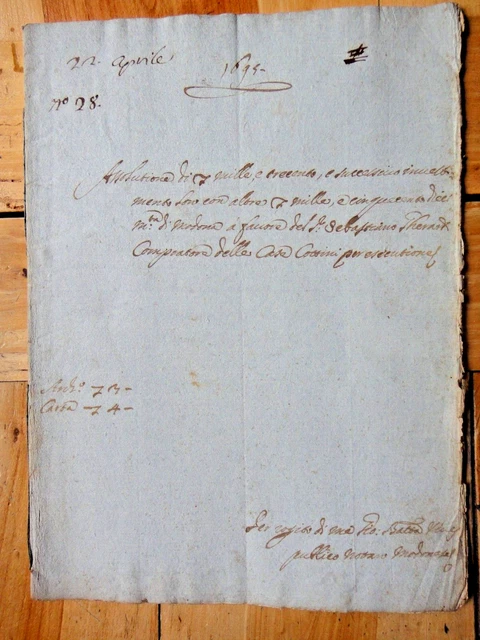 22. Aprile
1695
N.º 28.
Assolutione di mille, e trecento, e successivo investi-
mento loro con altre mille, e cinquecento di
m.ta di Modona a favore del S.r Sebastiano
Compratore delle Case Coccini per esecutione
Arch.º 73-
Carta 74-
Per rogito di me Gio.
publico notaro Modonese